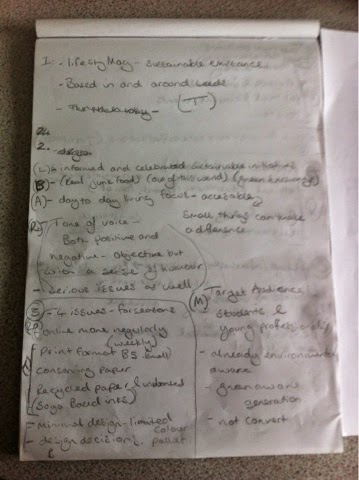 1. - lifestyMag - Sustainable existance
- Based in and around Leeds
2.
(L) informed and celebrated sustainable initiatives
(B) - (Real junk food) (out of this world) (green exchange)
(A) - day to day living focus - accessabley
Small things can make
a difference
Tone of voice -
Both positive and
negative - objective but
with a sense of humour
- Serious issues as well
(S) - 4 issues - for seasons
Online more regularly
(weekly)
- Print format B5 small
Conserving paper
Recycled paper &
(Soya Based inks)
- Minimal design - limited
colour
- design decision pallet
(M) Target Audience
Students &
young professionals
- already environmentally
aware
- green aware
generation
- not convert